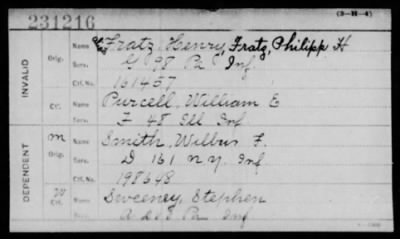 231216
(3-H-4)
Name Fratz, Henry, Fratz, Philipp H
Orig. Serv. G 98 Pa Inf.
Ctf. No. 161457
INVALID
Name Purcell, William E
Ctf. Serv. F 48 Ill Inf
M Name Smith, Wilbur F.
Orig. Serv. D 161 N.Y. Inf.
Ctf. No. 198648
DEPENDENT
W Name Sweeney, Stephen
Ctf. Serv. Pa Inf